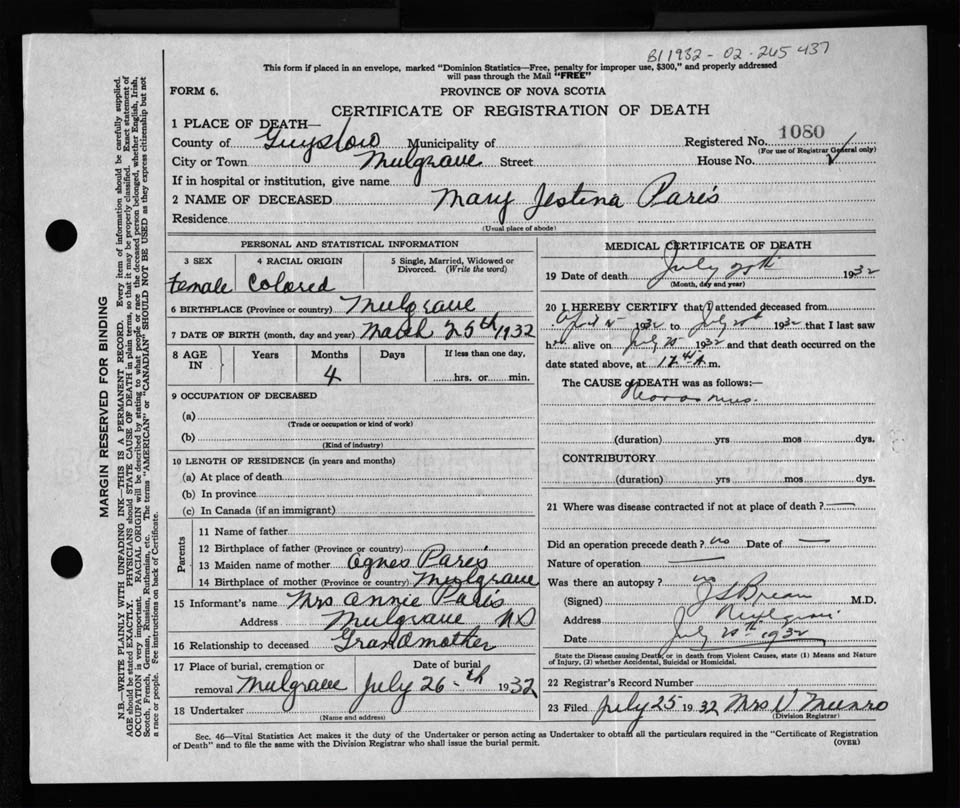 B11932-02-245437
This form if placed in an envelope, marked "Dominion Statistics—Free, penalty for improper use, $300," and properly addressed
will pass through the Mail "FREE"
FORM 6.
PROVINCE OF NOVA SCOTIA
CERTIFICATE OF REGISTRATION OF DEATH
1 PLACE OF DEATH—
County of Guysboro Municipality of Registered No. 1080
(For use of Registrar General only)
City or Town Mulgrave Street House No.
If in hospital or institution, give name
2 NAME OF DECEASED Mary Jestina Paris
Residence
(Usual place of abode)
PERSONAL AND STATISTICAL INFORMATION
3 SEX 4 RACIAL ORIGIN 5 Single, Married, Widowed or
Divorced. (Write the word)
Female Colored
6 BIRTHPLACE (Province or country) Mulgrave
7 DATE OF BIRTH (month, day and year) March 25th 1932
8 AGE IN Years Months Days If less than one day,
4 hrs. or min.
9 OCCUPATION OF DECEASED
(a)
(Trade or occupation or kind of work)
(b)
(Kind of industry)
10 LENGTH OF RESIDENCE (in years and months)
(a) At place of death
(b) In province
(c) In Canada (if an immigrant)
Parents
11 Name of father
12 Birthplace of father (Province or country)
13 Maiden name of mother Agnes Paris
14 Birthplace of mother (Province or country) Mulgrave
15 Informant's name Mrs Annie Paris
Address Mulgrave NS
16 Relationship to deceased Grandmother
17 Place of burial, cremation or Date of burial
removal Mulgrave July 26-th 1932
18 Undertaker
(Name and address)
MEDICAL CERTIFICATE OF DEATH
19 Date of death July 1932
(Month, day and year)
20 I HEREBY CERTIFY that I attended deceased from
April 1932 to July 1932 that I last saw
her alive on July 1932 and that death occurred on the
date stated above, at 12 m.
The CAUSE of DEATH was as follows:—
(duration) yrs mos dys.
CONTRIBUTORY
(duration) yrs mos dys.
21 Where was disease contracted if not at place of death?
Did an operation precede death? no Date of —
Nature of operation —
Was there an autopsy? no
(Signed) M.D.
Address Mulgrave
Date July 1932
State the Disease causing Death, or in death from Violent Causes, state (1) Means and Nature
of Injury, (2) whether Accidental, Suicidal or Homicidal.
22 Registrar's Record Number
23 Filed July 25 1932 Mrs V Munro
(Division Registrar)
Sec. 46—Vital Statistics Act makes it the duty of the Undertaker or person acting as Undertaker to obtain all the particulars required in the "Certificate of Registration
of Death" and to file the same with the Division Registrar who shall issue the burial permit.
(OVER)
MARGIN RESERVED FOR BINDING
N.B.—WRITE PLAINLY WITH UNFADING INK—THIS IS A PERMANENT RECORD. Every item of information should be carefully supplied.
AGE should be stated EXACTLY. PHYSICIANS should STATE CAUSE OF DEATH in plain terms, so that it may be properly classified. Exact statement of
OCCUPATION is very important. RACIAL ORIGIN will be described by stating to what people or race the deceased person belonged, whether English, Irish,
Scotch, French, German, Russian, Ruthenian, etc. The terms "AMERICAN" or "CANADIAN" SHOULD NOT BE USED as they express citizenship but not
a race or people. See instructions on back of Certificate.